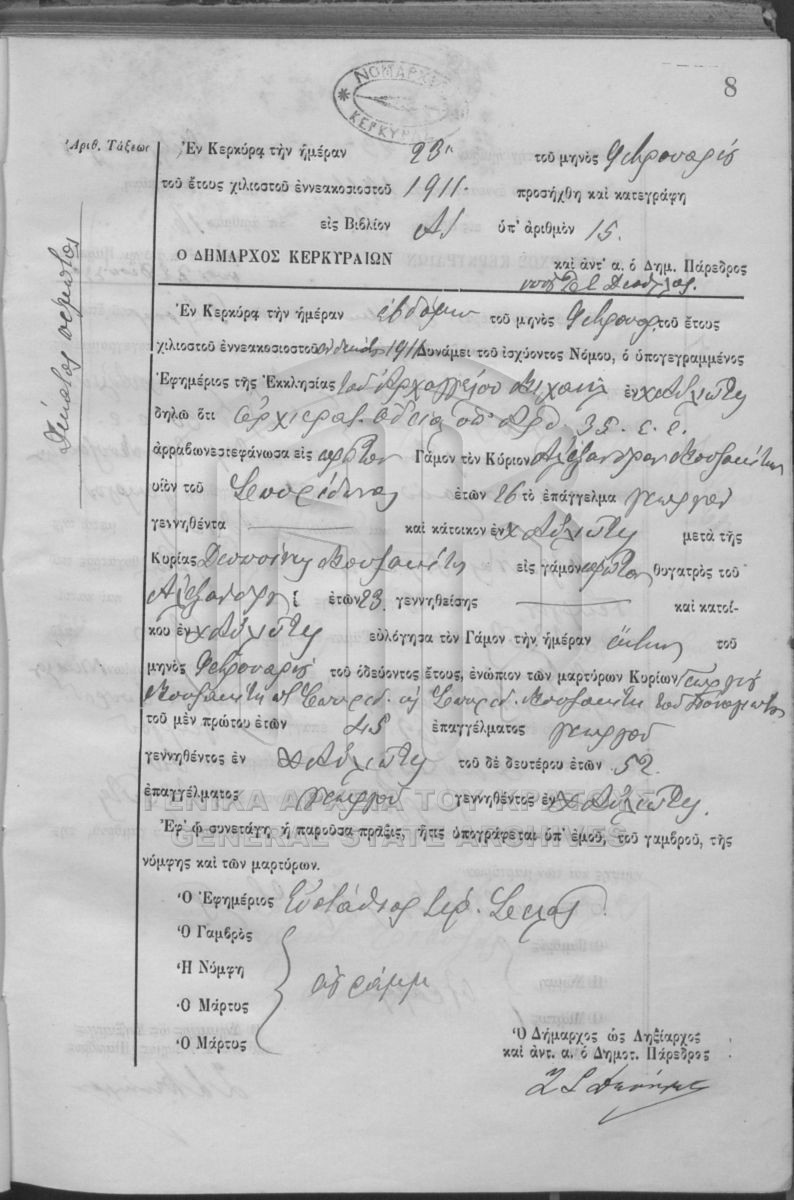 8
ΝΟΜΑΡΧΙ
ΚΕΡΚΥΡΑΣ
Ἀριθ. Τάξεως
Δέκατος πέμπτος
Ἐν Κερκύρᾳ τὴν ἡμέραν 23ην τοῦ μηνὸς Φεβρουαρίου
τοῦ ἔτους χιλιοστοῦ ἐννεακοσιοστοῦ 1911. προσήχθη καὶ κατεγράφη
εἰς Βιβλίον ὑπ' ἀριθμὸν 15.
Ο ΔΗΜΑΡΧΟΣ ΚΕΡΚΥΡΑΙΩΝ
καὶ ἀντ' α. ὁ Δημ. Πάρεδρος
Ἐν Κερκύρᾳ τὴν ἡμέραν ἑβδόμην τοῦ μηνὸς Φεβρουαρ. τοῦ ἔτους
χιλιοστοῦ ἐννεακοσιοστοῦ ἑνδεκάτου 1911 Δυνάμει τοῦ ἰσχύοντος Νόμου, ὁ ὑπογεγραμμένος
Ἐφημέριος τῆς Ἐκκλησίας τοῦ Ἀρχαγγέλου Μιχαὴλ ἐν Αὐλιώτες
δηλῶ ὅτι ἀρχιερατ. ἀδείᾳ ὑπ' ἀρθ 35. ἐ. ἔ.
ἀρραβωνεστεφάνωσα εἰς πρῶτον Γάμον τὸν Κύριον Ἀλέξανδρον Μουζακίτην
υἱὸν τοῦ Σπυρίδωνος ἐτῶν 26 τὸ ἐπάγγελμα γεωργὸν
γεννηθέντα καὶ κάτοικον ἐν χ Αὐλιώτες μετὰ τῆς
Κυρίας Δεσποίνης Μουζακίτη εἰς γάμον πρῶτον θυγατρὸς τοῦ
Ἀλεξάνδρου ἐτῶν 23. γεννηθείσης καὶ κατοί-
κου ἐν χ Αὐλιώτες εὐλόγησα τὸν Γάμον τὴν ἡμέραν ἕκτην τοῦ
μηνὸς Φεβρουαρίου τοῦ ὁδεύοντος ἔτους, ἐνώπιον τῶν μαρτύρων Κυρίων Γεωργίου
Μουζακίτη Σπυρίδ. Σπυρίδ. Μουζακίτη τοῦ Παναγιώτη
τοῦ μὲν πρώτου ἐτῶν 45 ἐπαγγέλματος γεωργοῦ
γεννηθέντος ἐν χ Αὐλιώτες τοῦ δὲ δευτέρου ἐτῶν 52
ἐπαγγέλματος γεωργοῦ γεννηθέντος ἐν χ Αὐλιώτες.
ΓΕΝΙΚΑ ΑΡΧΕΙΑ ΤΟΥ ΚΡΑΤΟΥΣ
Ἐφ' ᾧ συνετάγη ἡ παροῦσα πρᾶξις, ἥτις ὑπογράφεται ὑπ' ἐμοῦ, τοῦ γαμβροῦ, τῆς
GENERAL STATE ARCHIVES
νύμφης καὶ τῶν μαρτύρων.
Ὁ Ἐφημέριος Εὐστάθιος ἱερ.
Ὁ Γαμβρὸς
Ἡ Νύμφη
ἀγράμμ
Ὁ Μάρτυς
Ὁ Μάρτυς
Ὁ Δήμαρχος ὡς Ληξίαρχος
καὶ ἀντ. α. ὁ Δημοτ. Πάρεδρος